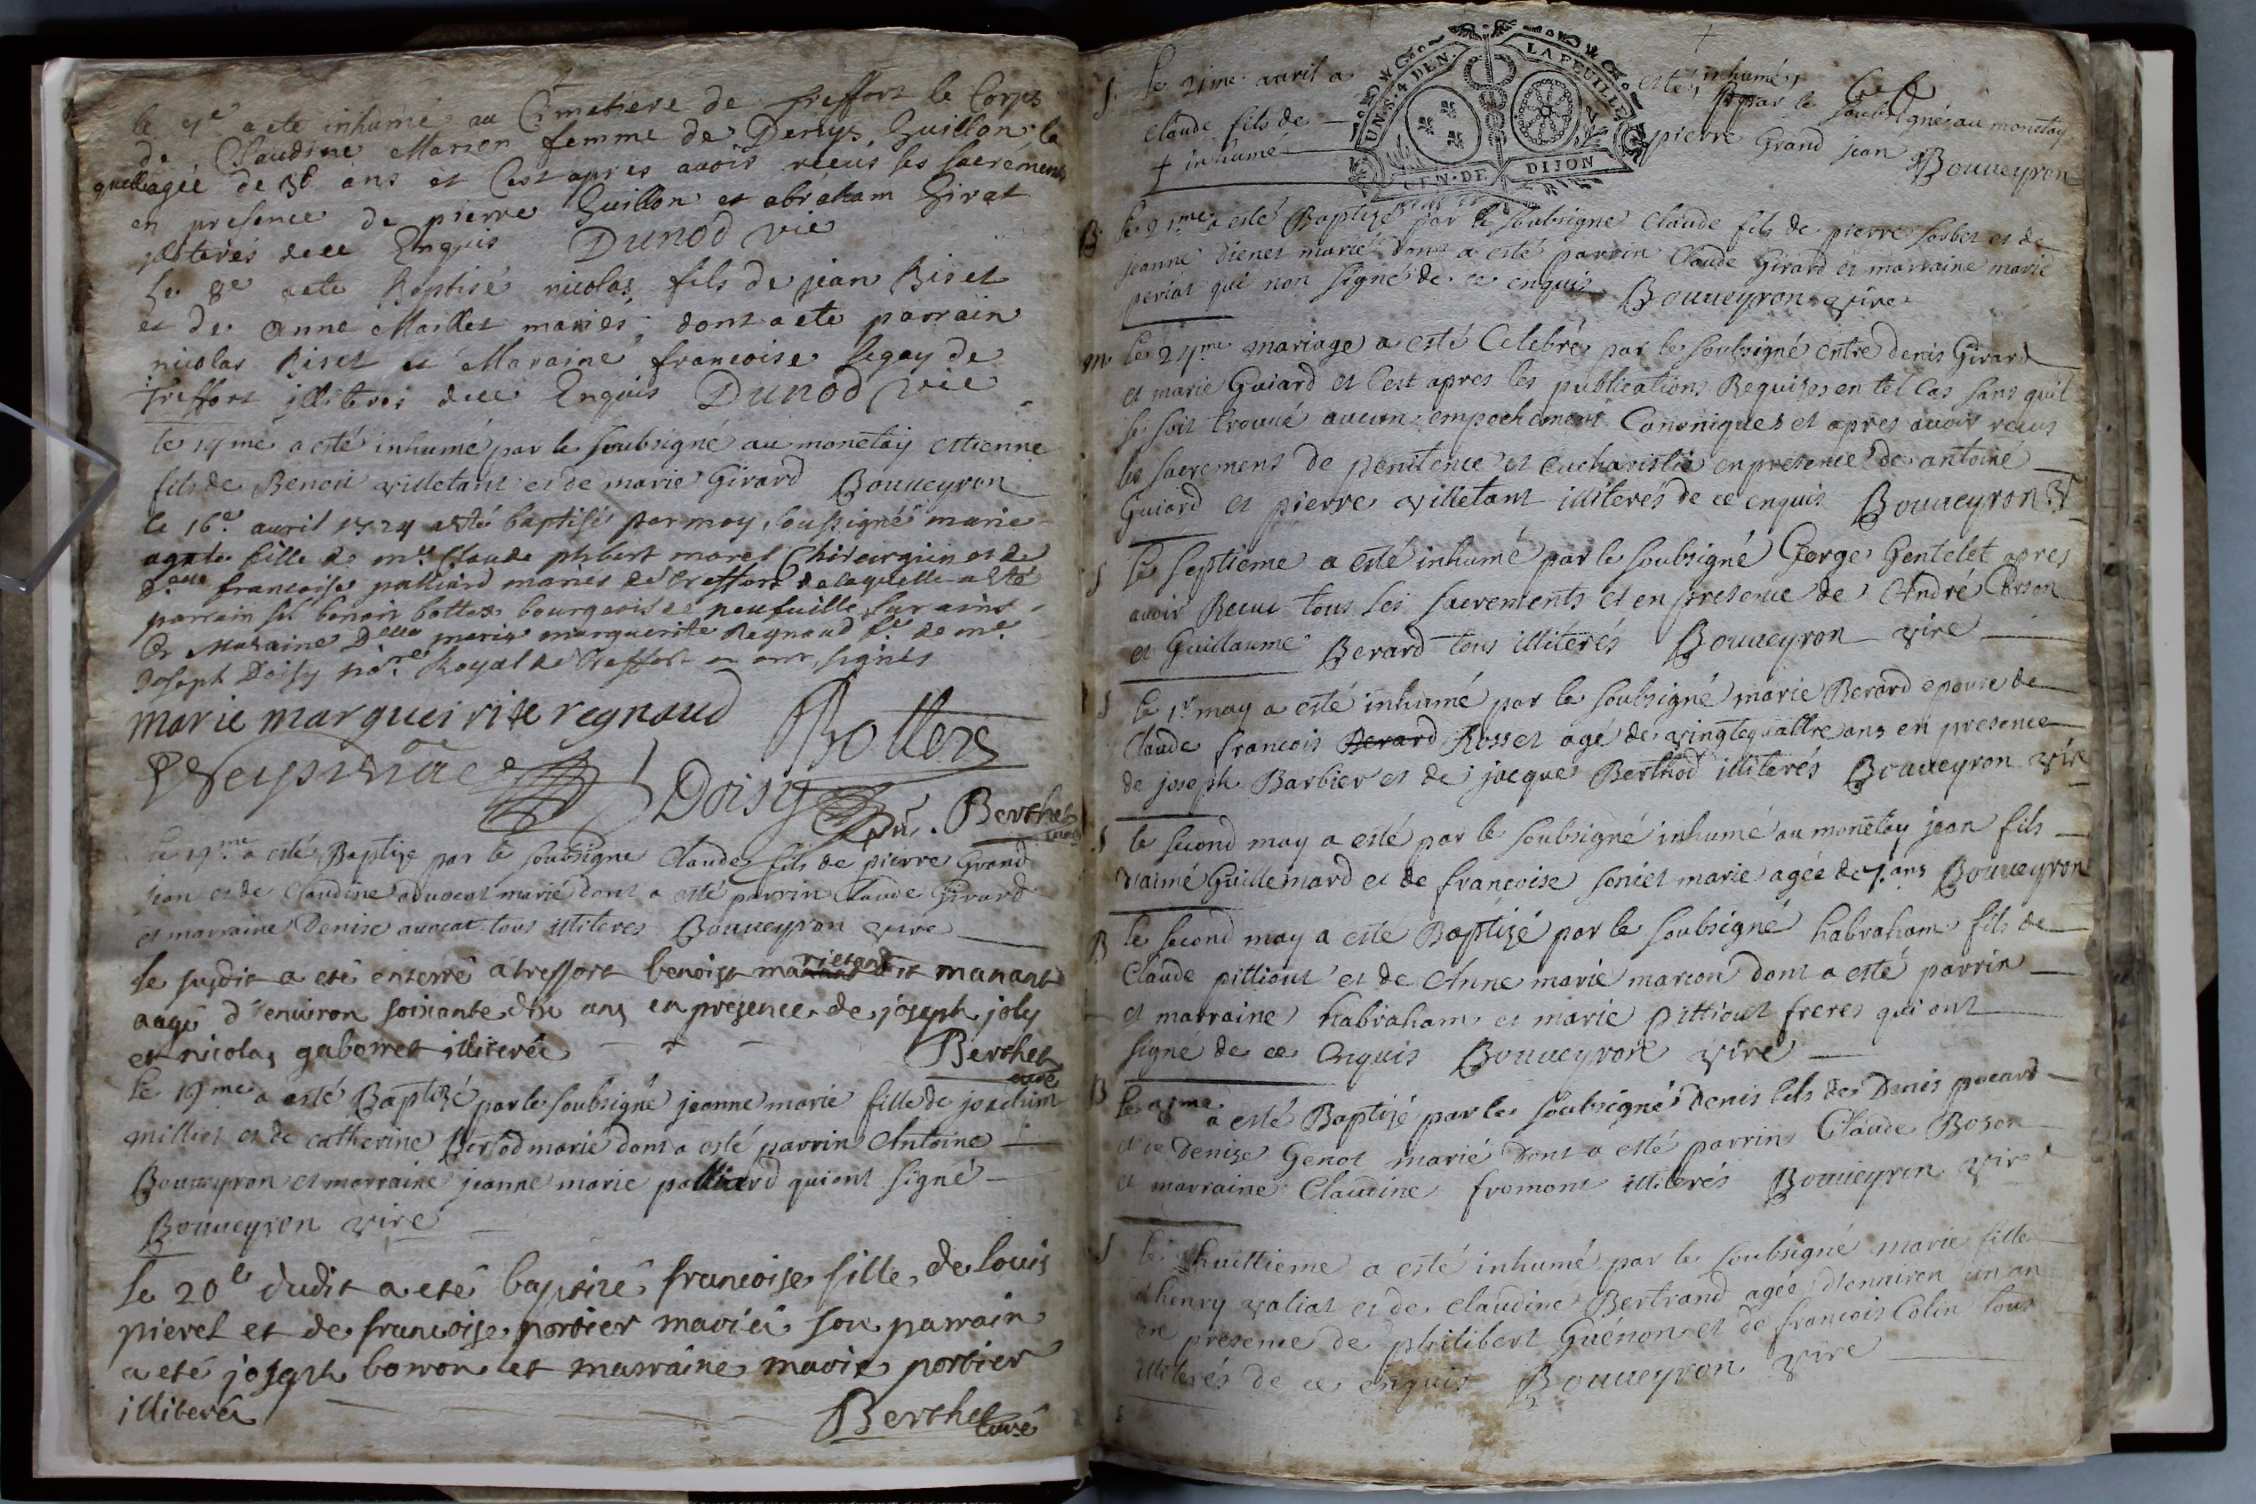 le 7e a ete inhumé au Cimetiere de treffort le Corps
de Claudine Marion femme de Denys Guillon la
quelle agée de ans et C'est apres avoir receus les sacrements
en presence de pierre Guillon et abraham Girat
illiterés de ce Enquis Dunod vic
Le 8e a ete Baptisé nicolas fils de jean Biset
et de anne Maillet mariés dont a ete parrain
nicolas Biset et Maraine francoise legay de
Treffort illiterés de ce Enquis Dunod vic
le 14me a esté inhumé par le soubsigné au monetay estienne
fils de Benoit villetant et de marie Girard Bouueyron
le 16e auril 1724 a esté baptisé par moy soussigné marie
agate fille de mr Claude philbert morel Chirurgien et de
dlle francoise palliard mariés de treffort de laquelle a esté
parrain sr benoit bottex bourgeois de neufuille sur ains
Et Maraine Delle marie marguerite Regnaud fe de me
Joseph Doisy nore Royal de treffort et ont signés
marie margueirite regnaud Bottex
Doisy Berthet
curé
le 19me a esté Baptizé par le soubsigné Claude fils de pierre Grand
jean et de Claudine aduocat marié dont a esté parrin Claude Girard
et marraine Denise auocat tous illiteres Bouueyron vire
le susdit a eté enterré a treffort benoist dit manant
aagé d'enuiron soixante dix ans en presence de joseph joly
et nicolas gaborret illiterés Berthet
curé
Le 19me a esté Baptizé par le soubsigné jeanne marie fille de joachim
milliet et de catherine Bertod marié dont a esté parrin Antoine
Bouueyron et marraine jeanne marie palliard qui ont signé
Bouueyron vire
le 20e dudit a eté baptizé francoise fille de louis
pierel et de francoise portier mariés son parrain
a eté joseph bowon et marraine marie portier
illiterés Berthet curé
UN S. 4 DEN. LA FEUILLE
GEN. DE DIJON
S. le 21me auril a esté inhumé par le soubsigné au monetay
Claude fils de pierre Grand jean Bouueyron
+ inhumé
B. le 21me a esté Baptizé par le soubsigné Claude fils de pierre sorbet et de
jeanne Dienet marié dont a esté parrin Claude Girard et marraine marie
periat qui non signé de ce enquis Bouueyron vire
m. le 24me mariage a esté Celebré par le soubsigné entre denis Girard
et marie Guiard et c'est apres les publications Requises en tel Cas sans quil
se soit trouué aucun empechement Canoniques et apres auoir receus
les sacremens de penitence et eucharistie en presence de antoine
Guiard et pierre villetant illiterés de ce enquis Bouueyron V
S le septieme a esté inhumé par le soubsigné George Gentelet apres
auoir Receu tous les sacrements et en presence de André Corson
et Guillaume Berard tous illiterés Bouueyron vire
S le 1r may a esté inhumé par le soubsigné marie Berard epouse de
Claude francois Berard Rosset agé de vingtequattre ans en presence
de joseph Barbier et de jacque Berthod illiterés Bouueyron vire
S le second may a esté par le soubsigné inhumé au monetay jean fils
d'aimé Guillemard et de francoise soniet marie agée de 7 ans Bouueyron
B le second may a esté Baptizé par le soubsigné habraham fils de
Claude pittiout et de Anne marie marcon dont a esté parrin
et marraine habraham et marie pittiout freres qui ont
signé de ce enquis Bouueyron vire
B le me a esté Baptizé par le soubsigné denis fils de Denis pocard
et de Denize Genot marié dont a esté parrin Claude Boson
et marraine Claudine fromont illiterés Bouueyron vire
S le huittieme a esté inhumé par le soubsigné marie fille
d'henry valiat et de Claudine Bertrand agée d'enuiron un an
en presence de philibert Guénon et de francois Colin tous
illiterés de ce enquis Bouueyron vire